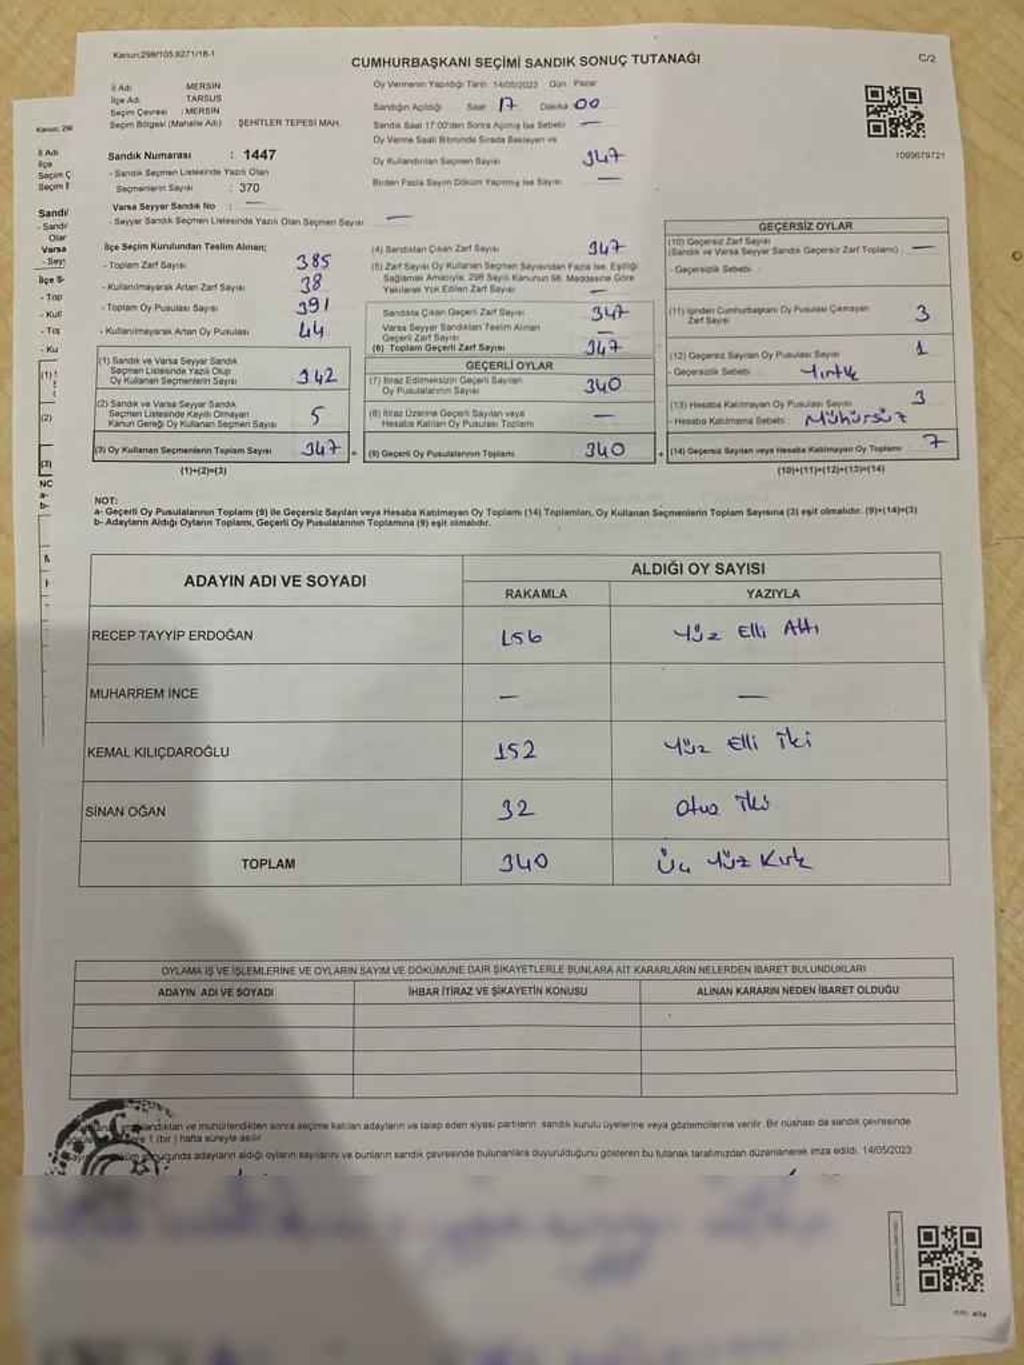 Kanun:298/105.6271/18-1
CUMHURBAŞKANI SEÇİMİ SANDIK SONUÇ TUTANAĞI
C/2
İl Adı MERSİN
İlçe Adı TARSUS
Seçim Çevresi : MERSİN
Seçim Bölgesi (Mahalle Adı) ŞEHİTLER TEPESİ MAH.
Oy Vermenin Yapıldığı Tarih 14/05/2023 Gün : Pazar
Sandığın Açıldığı Saat 17 Dakika 00
Sandık Saat 17:00'den Sonra Açılmış İse Sebebi —
Oy Verme Saati Bitiminde Sırada Bekleyen ve
Oy Kullandırılan Seçmen Sayısı 347
Birden Fazla Sayım Döküm Yapılmış İse Sayısı —
1069679721
Sandık Numarası : 1447
- Sandık Seçmen Listesinde Yazılı Olan
Seçmenlerin Sayısı : 370
Varsa Seyyar Sandık No : —
- Seyyar Sandık Seçmen Listesinde Yazılı Olan Seçmen Sayısı —
İlçe Seçim Kurulundan Teslim Alınan;
- Toplam Zarf Sayısı 385
- Kullanılmayarak Artan Zarf Sayısı 38
- Toplam Oy Pusulası Sayısı 391
- Kullanılmayarak Artan Oy Pusulası 44
(1) Sandık ve Varsa Seyyar Sandık
Seçmen Listesinde Yazılı Olup
Oy Kullanan Seçmenlerin Sayısı 342
(2) Sandık ve Varsa Seyyar Sandık
Seçmen Listesinde Kayıtlı Olmayan
Kanun Gereği Oy Kullanan Seçmen Sayısı 5
(3) Oy Kullanan Seçmenlerin Toplam Sayısı 347
(1)+(2)=(3)
(4) Sandıktan Çıkan Zarf Sayısı 347
(5) Zarf Sayısı Oy Kullanan Seçmen Sayısından Fazla İse, Eşitliği
Sağlamak Amacıyla, 298 Sayılı Kanunun 98. Maddesine Göre
Yakılarak Yok Edilen Zarf Sayısı —
Sandıkta Çıkan Geçerli Zarf Sayısı 347
Varsa Seyyar Sandıktan Teslim Alınan
Geçerli Zarf Sayısı —
(6) Toplam Geçerli Zarf Sayısı 347
GEÇERLİ OYLAR
(7) İtiraz Edilmeksizin Geçerli Sayılan
Oy Pusulalarının Sayısı 340
(8) İtiraz Üzerine Geçerli Sayılan veya
Hesaba Katılan Oy Pusulası Toplamı —
(9) Geçerli Oy Pusulalarının Toplamı 340
GEÇERSİZ OYLAR
(10) Geçersiz Zarf Sayısı
(Sandık ve Varsa Seyyar Sandık Geçersiz Zarf Toplamı) —
- Geçersizlik Sebebi
(11) İçinden Cumhurbaşkanı Oy Pusulası Çıkmayan
Zarf Sayısı 3
(12) Geçersiz Sayılan Oy Pusulası Sayısı 1
- Geçersizlik Sebebi Yırtık
(13) Hesaba Katılmayan Oy Pusulası Sayısı 3
- Hesaba Katılmama Sebebi : Mühürsüz
(14) Geçersiz Sayılan veya Hesaba Katılmayan Oy Toplamı 7
(10)+(11)+(12)+(13)=(14)
NOT:
a- Geçerli Oy Pusulalarının Toplamı (9) ile Geçersiz Sayılan veya Hesaba Katılmayan Oy Toplamı (14) Toplamları, Oy Kullanan Seçmenlerin Toplam Sayısına (3) eşit olmalıdır. (9)+(14)=(3)
b- Adayların Aldığı Oyların Toplamı, Geçerli Oy Pusulalarının Toplamına (9) eşit olmalıdır.
ADAYIN ADI VE SOYADI
ALDIĞI OY SAYISI
RAKAMLA YAZIYLA
RECEP TAYYİP ERDOĞAN 156 Yüz Elli Altı
MUHARREM İNCE — —
KEMAL KILIÇDAROĞLU 152 Yüz Elli İki
SİNAN OĞAN 32 Otuz İki
TOPLAM 340 Üç Yüz Kırk
OYLAMA İŞ VE İŞLEMLERİNE VE OYLARIN SAYIM VE DÖKÜMÜNE DAİR ŞİKAYETLERLE BUNLARA AİT KARARLARIN NELERDEN İBARET BULUNDUKLARI
ADAYIN ADI VE SOYADI İHBAR İTİRAZ VE ŞİKAYETİN KONUSU ALINAN KARARIN NEDEN İBARET OLDUĞU
ve mühürlendikten sonra seçime katılan adayların ve talep eden siyasi partilerin sandık kurulu üyelerine veya gözlemcilerine verilir. Bir nüshası da sandık çevresinde
1 (bir) hafta süreyle asılır
adayların aldığı oyların sayılarını ve bunların sandık çevresinde bulunanlara duyurulduğunu gösteren bu tutanak tarafımızdan düzenlenerek imza edildi. 14/05/2023
T.C.